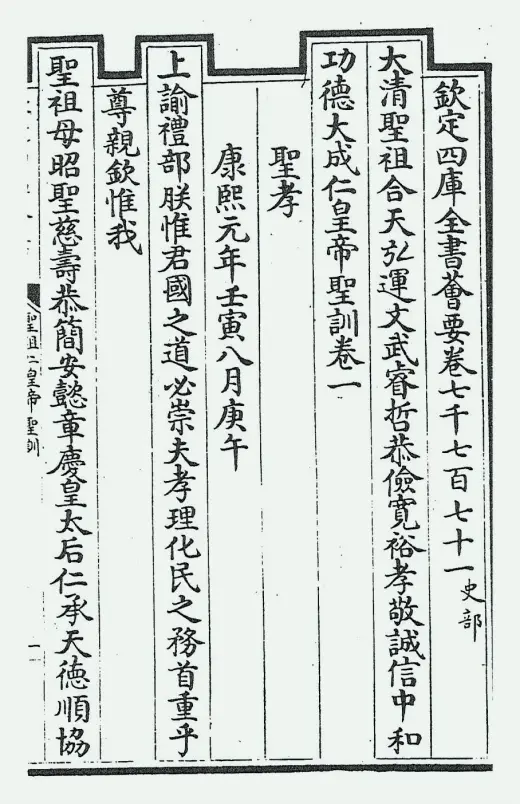 欽定四庫全書薈要卷七千七百七十一 史部
大清聖祖合天弘運文武睿哲恭儉寬裕孝敬誠信中和
功德大成仁皇帝聖訓卷一
聖孝
康熙元年壬寅八月庚午
上諭禮部朕惟君國之道必崇夫孝理化民之務首重乎
尊親欽惟我
聖祖母昭聖慈壽恭簡安懿章慶皇太后仁承天德順協
聖祖仁皇帝聖訓
一